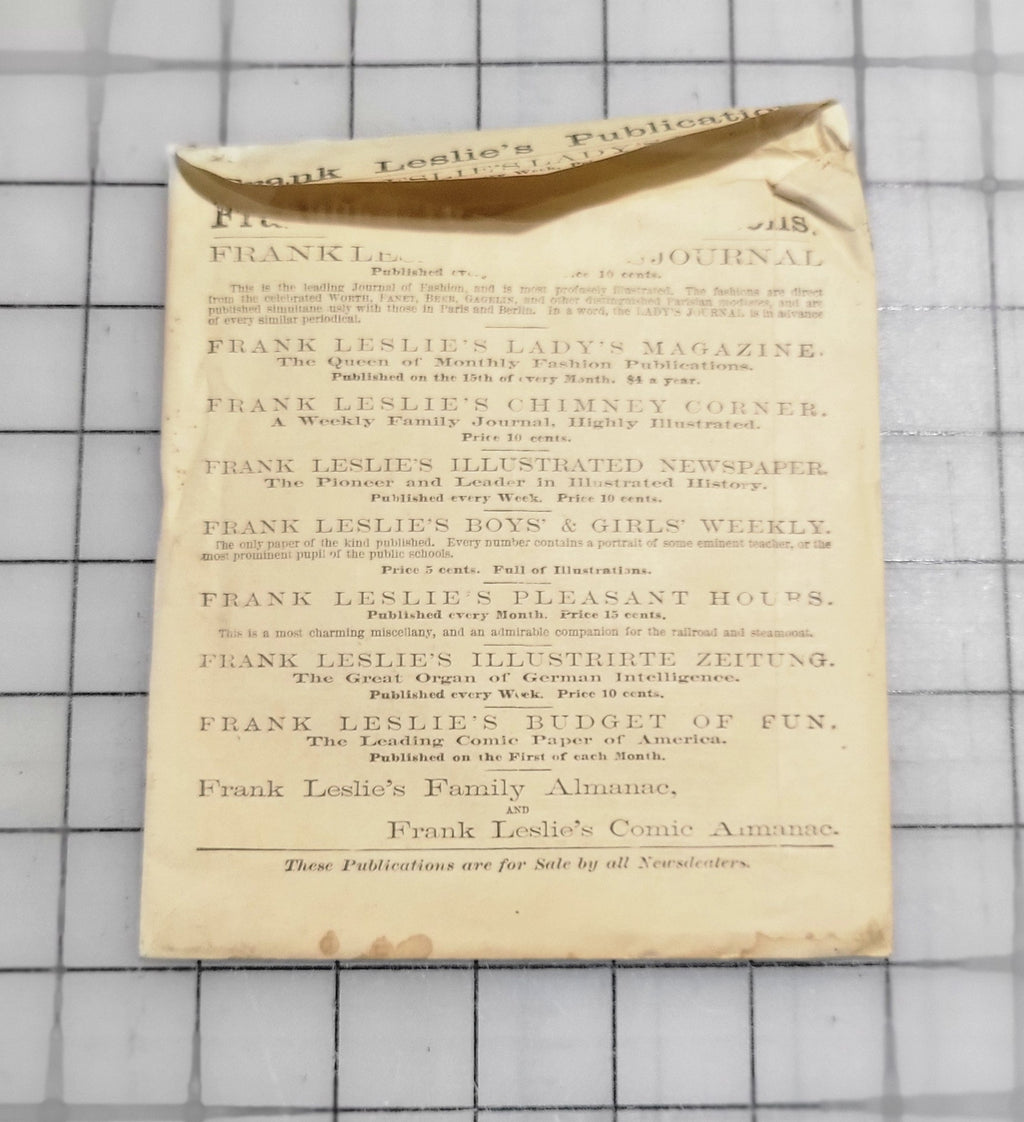 Frank Leslie's
LESLIE'S LADY'S
FRANK JOURNAL
Published 10 cents.
This is the leading Journal of Fashion, and is most profusely illustrated. The fashions are direct
from the celebrated WORTH, FANET, BEER, GAGELIN, and other distinguished Parisian modistes, and are
published simultane usly with those in Paris and Berlin. In a word, the LADY'S JOURNAL is in advance
of every similar periodical.
FRANK LESLIE'S LADY'S MAGAZINE.
The Queen of Monthly Fashion Publications.
Published on the 15th of every Month. $4 a year.
FRANK LESLIE'S CHIMNEY CORNER.
A Weekly Family Journal, Highly Illustrated.
Price 10 cents.
FRANK LESLIE'S ILLUSTRATED NEWSPAPER.
The Pioneer and Leader in Illustrated History.
Published every Week. Price 10 cents.
FRANK LESLIE'S BOYS' & GIRLS' WEEKLY.
The only paper of the kind published. Every number contains a portrait of some eminent teacher, or the
most prominent pupil of the public schools.
Price 5 cents. Full of Illustrations.
FRANK LESLIE'S PLEASANT HOURS.
Published every Month. Price 15 cents.
This is a most charming miscellany, and an admirable companion for the railroad and steamboat.
FRANK LESLIE'S ILLUSTRIRTE ZEITUNG.
The Great Organ of German Intelligence.
Published every Week. Price 10 cents.
FRANK LESLIE'S BUDGET OF FUN.
The Leading Comic Paper of America.
Published on the First of each Month.
Frank Leslie's Family Almanac,
AND
Frank Leslie's Comic Almanac.
These Publications are for Sale by all Newsdealers.